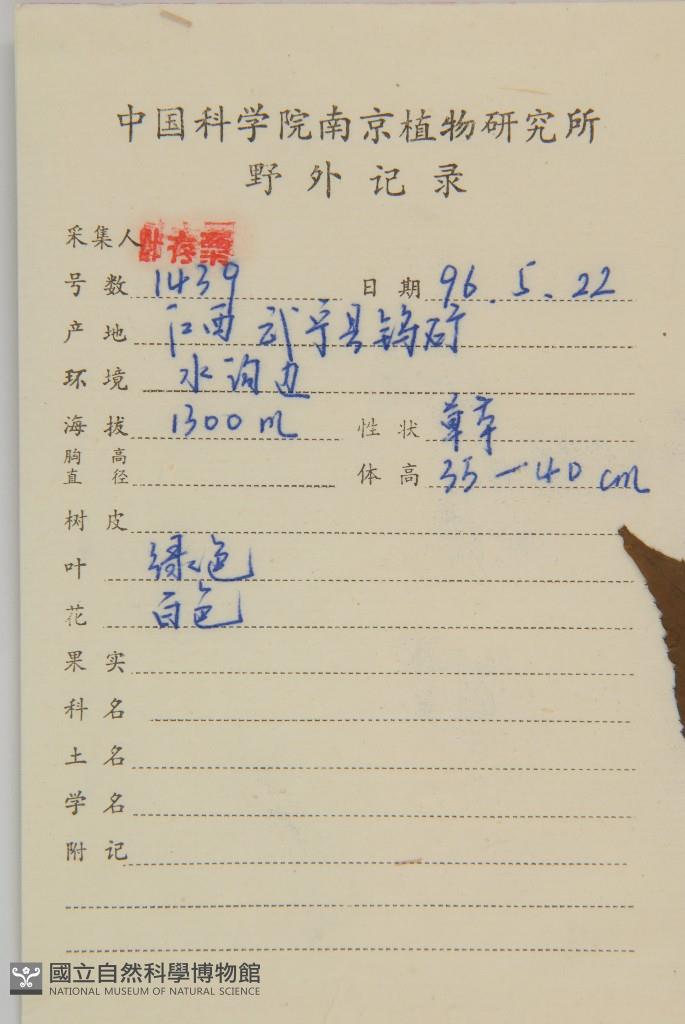 中国科学院南京植物研究所
野外记录
采集人 叶存粟
号数 1439 日期 96.5.22
产地 江西武宁县钨矿
环境 水沟边
海拔 1300m 性状 草本
胸高直径 体高 35-40cm
树皮
叶 绿色
花 白色
果实
科名
土名
学名
附记
國立自然科學博物館
NATIONAL MUSEUM OF NATURAL SCIENCE